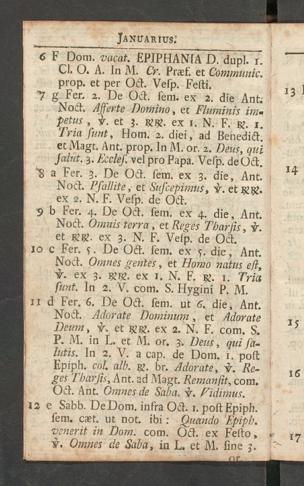 JANUARIUS.
6 F Dom. vacat. EPIPHANIA D. dupl. 1.
Cl. O. A. In M. Cr. Præf. et Communic.
prop. et per Oct. Vesp. Festi.
7 g Fer. 2. De Oct. sem. ex 2. die Ant.
Noct. Afferte Domino, et Fluminis im-
petus, ℣. et 3. ℟℟. ex 1. N. F. ℟. 1.
Tria sunt, Hom. 2. diei, ad Benedict.
et Magt. Ant. prop. In M. or. 2. Deus, qui
salut. 3. Eccles. vel pro Papa. Vesp. de Oct.
8 a Fer. 3. De Oct. sem. ex 3. die, Ant.
Noct. Psallite, et Suscepimus, ℣. et ℟℟.
ex 2. N. F. Vesp. de Oct.
9 b Fer. 4. De Oct. sem. ex 4. die, Ant.
Noct. Omnis terra, et Reges Tharsis, ℣.
et ℟℟. ex 3. N. F. Vesp. de Oct.
10 c Fer. 5. De Oct. sem. ex 5. die, Ant.
Noct. Omnes gentes, et Homo natus est,
℣. ex 3. ℟℟. ex 1. N. F. ℟. 1. Tria
sunt. In 2. V. com. S. Hygini P. M.
11 d Fer. 6. De Oct. sem. ut 6. die, Ant.
Noct. Adorate Dominum, et Adorate
Deum, ℣. et ℟℟. ex 2. N. F. com. S.
P. M. in L. et M. or. 3. Deus, qui sa-
lutis. In 2. V. a cap. de Dom. 1. post
Epiph. col. alb. ℟. br. Adorate, ℣. Re-
ges Tharsis, Ant. ad Magt. Remansit, com.
Oct. Ant. Omnes de Saba. ℣. Vidimus.
12 e Sabb. De Dom. infra Oct. 1. post Epiph.
sem. cæt. ut not. ibi: Quando Epiph.
venerit in Dom. com. Oct. ex Festo,
℣. Omnes de Saba, in L. et M. sine 3.
or.
13
14
15
16
17